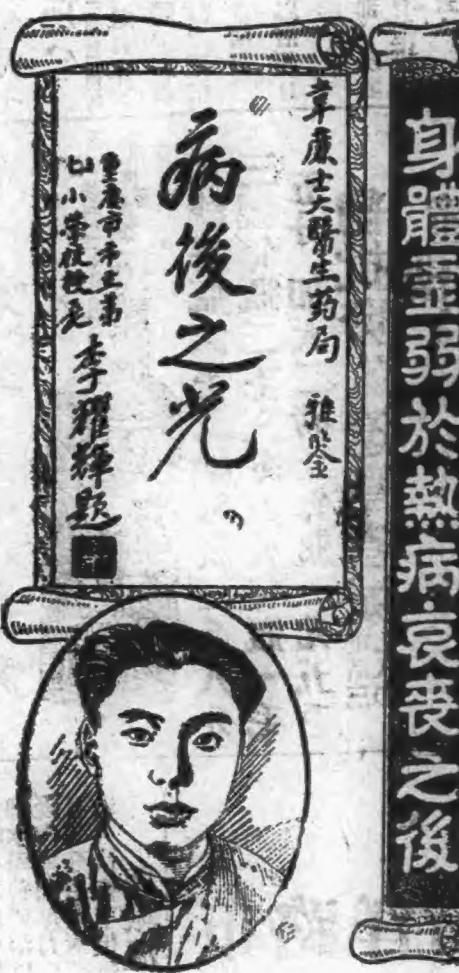 身體虛弱於熱病哀喪之後
韋廉士大醫生药局 雅鑒
病後之光
重慶市市立第
七小學校校長 李耀輝題